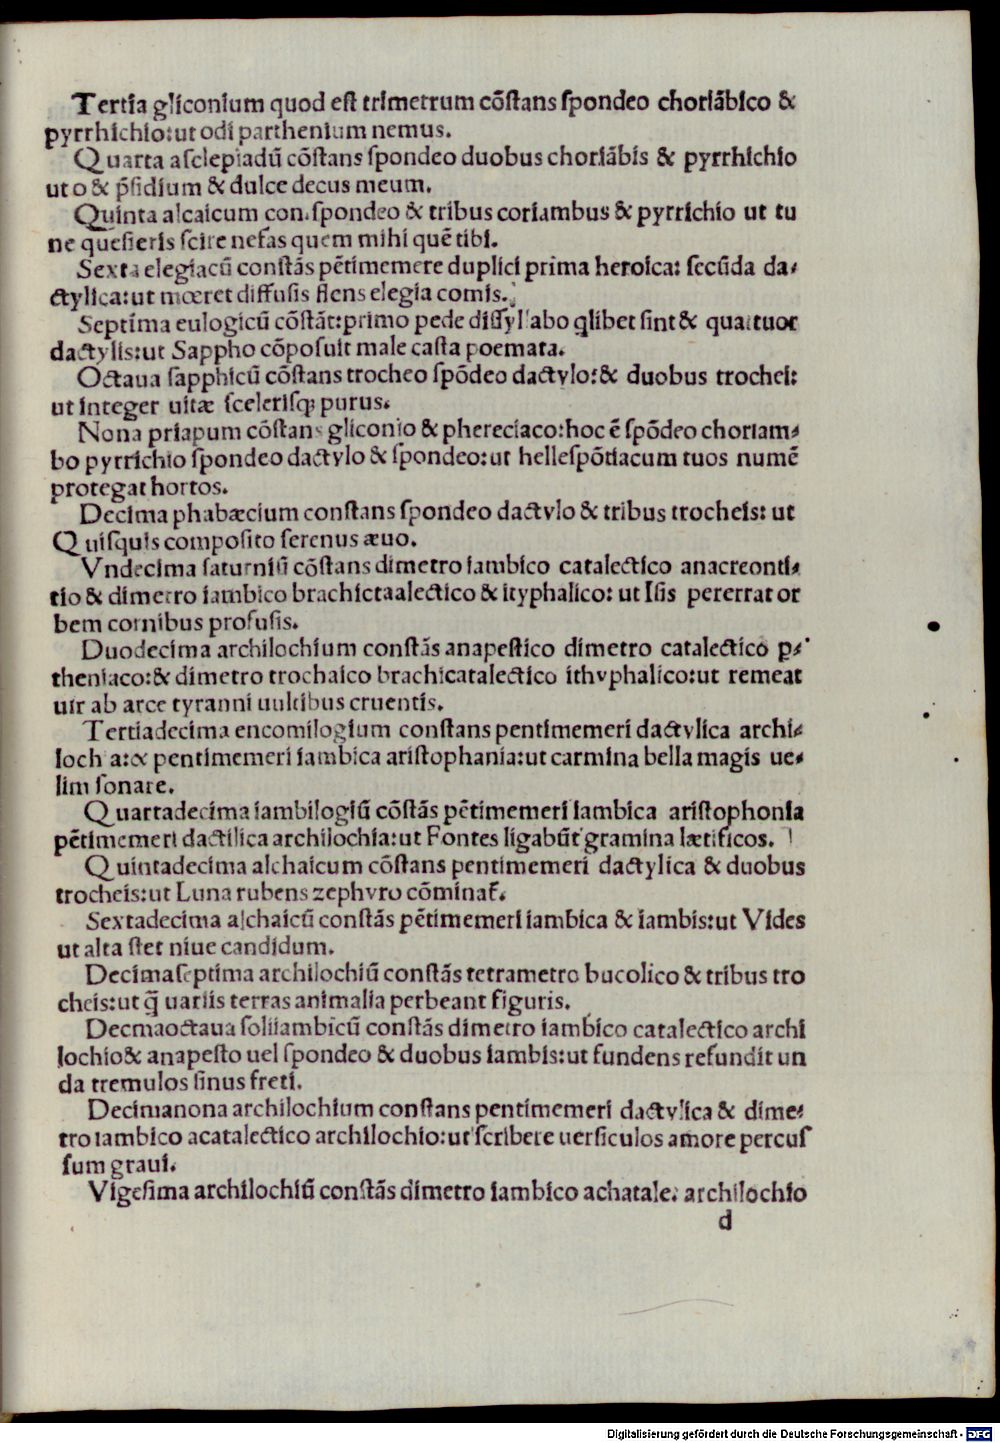 Tertia gliconium quod est trimetrum cōstans spondeo choriābico &
pyrrhichio:ut odi parthenium nemus.
Quarta asclepiadū cōstans spondeo duobus choriābis & pyrrhichio
ut o & p̄sidium & dulce decus meum.
Quinta alcaicum con. spondeo & tribus coriambus & pyrrichio ut tu
ne quesieris scire nefas quem mihi quē tibi.
Sexta elegiacū constās pētimemere duplici prima heroica: secūda da-
ctylica:ut mœret diffusis flens elegia comis.
Septima eulogicū cōstāt:primo pede dissyllabo qlibet sint & quattuor
dactylis:ut Sappho cōposuit male casta poemata.
Octaua sapphicū cōstans trocheo spōdeo dactylo:& duobus trochei:
ut integer uitæ scelerisq; purus.
Nona priapum cōstans gliconio & phereciaco:hoc ē spōdeo choriam-
bo pyrrichio spondeo dactylo & spondeo:ut hellespōtiacum tuos numē
protegat hortos.
Decima phabæcium constans spondeo dactvlo & tribus trocheis: ut
Quisquis composito serenus æuo.
Vndecima saturniū cōstans dimetro iambico catalectico anacreonti-
tio & dimetro iambico brachictaalectico & ityphalico: ut Isis pererrat or
bem cornibus profusis.
Duodecima archilochium constās anapestico dimetro catalectico p-
theniaco:& dimetro trochaico brachicatalectico ithvphalico:ut remeat
uir ab arce tyranni uultibus cruentis.
Tertiadecima encomilogium constans pentimemeri dactvlica archi-
loch a:& pentimemeri iambica aristophania:ut carmina bella magis ue-
lim sonare.
Quartadecima iambilogiū cōstās pētimemeri iambica aristophonia
pētimemeri dactilica archilochia:ut Fontes ligabūt gramina lætificos.
Quintadecima alchaicum cōstans pentimemeri dactylica & duobus
trocheis:ut Luna rubens zephvro cōminat̄.
Sextadecima alchaicū constās pētimemeri iambica & iambis:ut Vides
ut alta stet niue candidum.
Decimaseptima archilochiū constās tetrametro bucolico & tribus tro
cheis:ut q̄ uariis terras animalia perbeant figuris.
Decmaoctaua soliiambicū constās dimetro iambico catalectico archi
lochio& anapesto uel spondeo & duobus iambis:ut fundens refundit un
da tremulos sinus freti.
Decimanona archilochium constans pentimemeri dactvlica & dime-
tro iambico acatalectico archilochio:ut scribere uersiculos amore percus
sum graui.
Vigesima archilochiū constās dimetro iambico achatale. archilochio
d
Digitalisierung gefördert durch die Deutsche Forschungsgemeinschaft - DFG